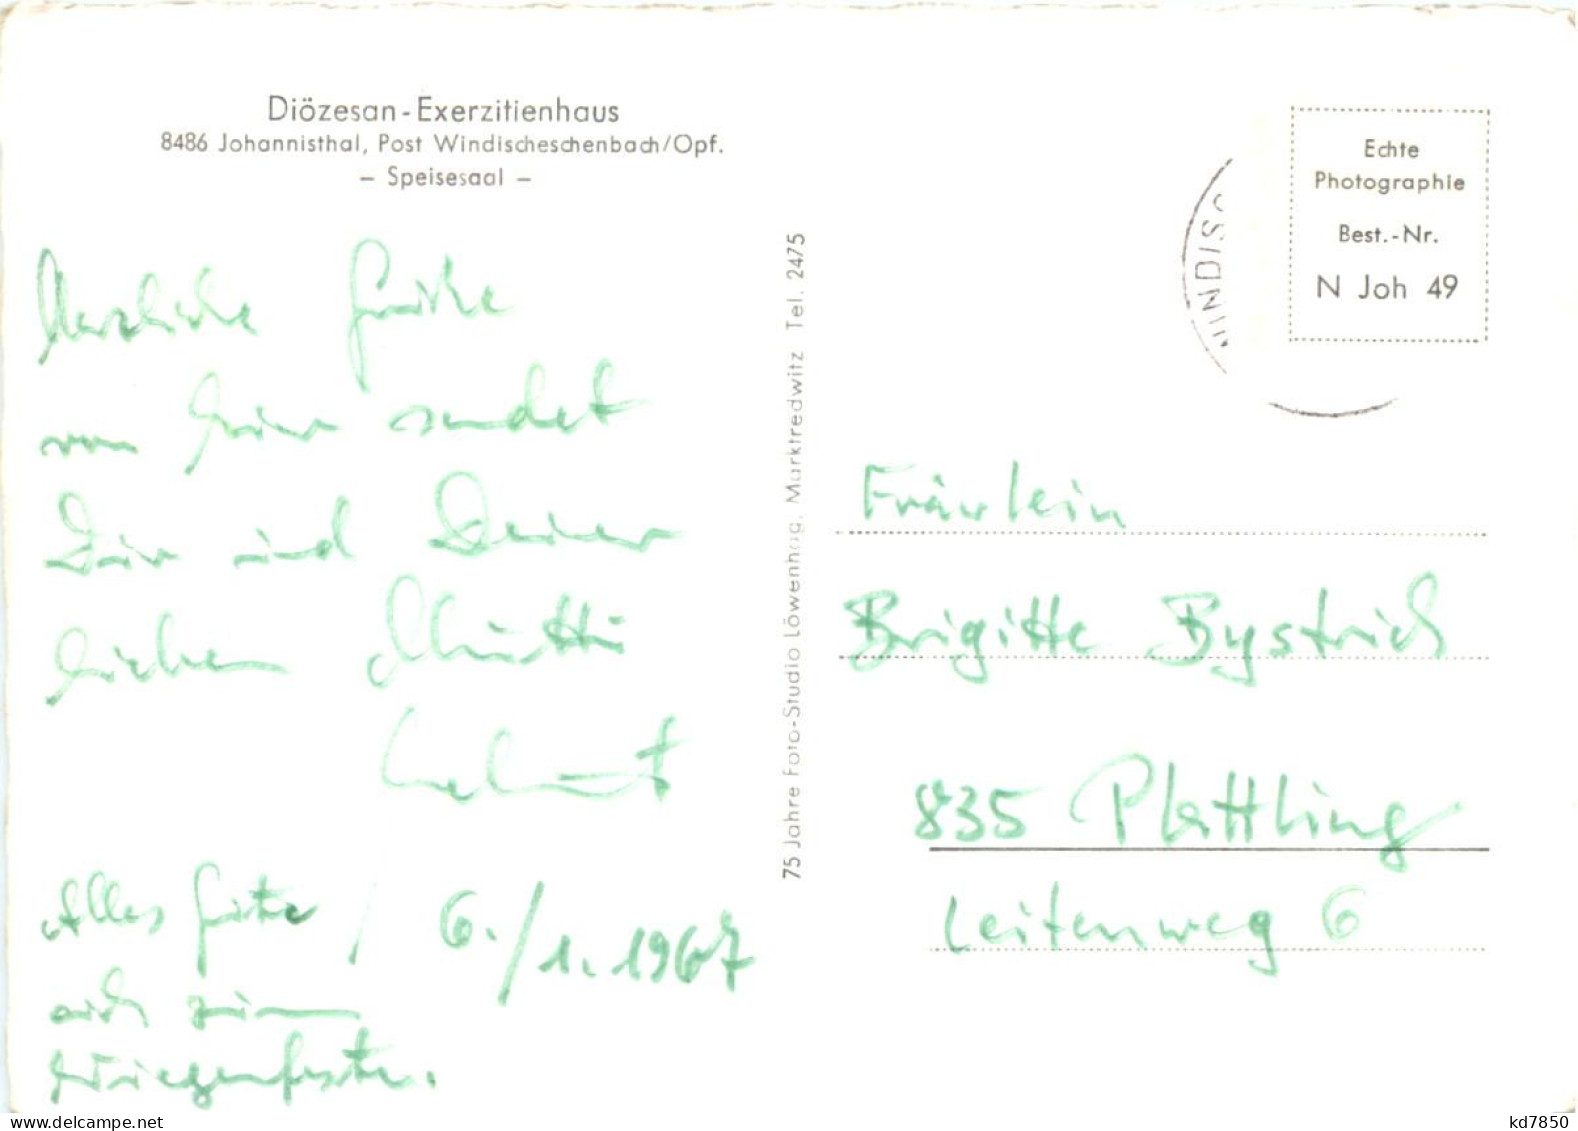 Diözesan-Exerzitienhaus
8486 Johannisthal, Post Windischeschenbach/Opf.
– Speisesaal –
Herzliche Grüße
von hier sendet
Dir und Deiner
lieben Mutti
Helmut
Alles Gute / 6./1.1967
auch zum
Wiegenfeste.
75 Jahre Foto-Studio Löwenhag, Marktredwitz Tel. 2475
WINDISC
Echte
Photographie
Best.-Nr.
N Joh 49
Fräulein
Brigitte Bystrich
835 Plattling
Leitenweg 6
kd7850